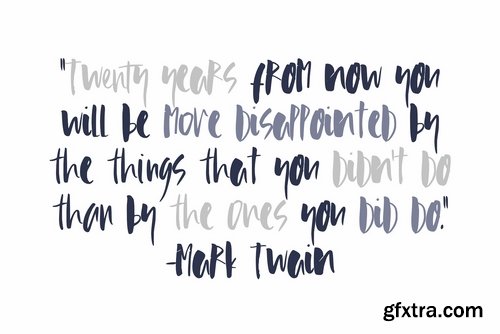 "Twenty years from now you
will be more disappointed by
the things that you didn't do
than by the ones you did do."
-Mark Twain
gfxtra.com